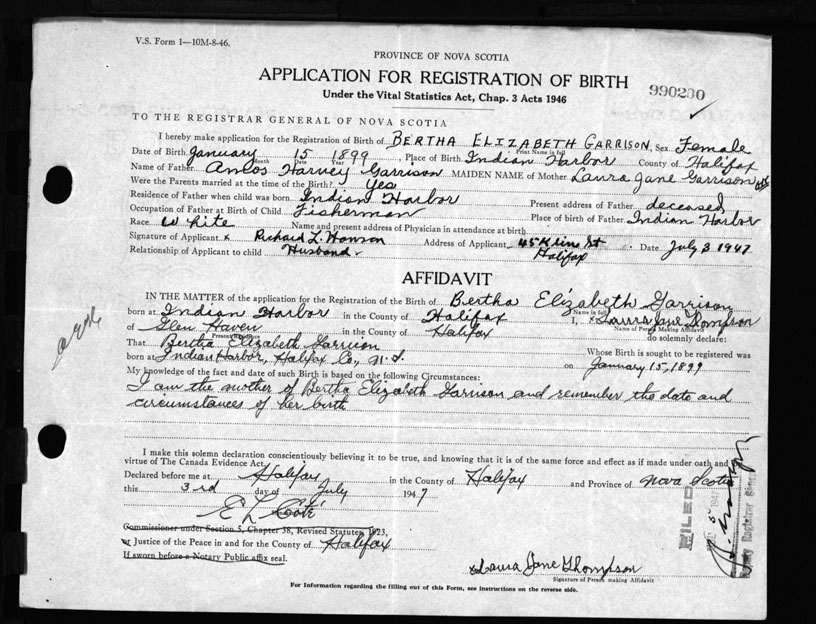 V.S. Form 1—10M-8-46.
PROVINCE OF NOVA SCOTIA
APPLICATION FOR REGISTRATION OF BIRTH
990200
Under the Vital Statistics Act, Chap. 3 Acts 1946
TO THE REGISTRAR GENERAL OF NOVA SCOTIA
I hereby make application for the Registration of Birth of BERTHA ELIZABETH GARRISON, Sex Female
Print Name in full
Date of Birth January 15 1899, Place of Birth Indian Harbor County of Halifax
Month Date Year
Name of Father Amos Harvey Garrison MAIDEN NAME of Mother Laura Jane Garrison
Were the Parents married at the time of the Birth? Yes
Residence of Father when child was born Indian Harbor Present address of Father deceased
Occupation of Father at Birth of Child Fisherman Place of birth of Father Indian Harbor
Race White Name and present address of Physician in attendance at birth
Signature of Applicant x Richard L. Address of Applicant 45 Kline St Date July 3 1947
Halifax
Relationship of Applicant to child Husband
AFFIDAVIT
IN THE MATTER of the application for the Registration of Birth of Bertha Elizabeth Garrison
Name in full
born at Indian Harbor in the County of Halifax I, x Laura Jane Thompson
Name of Person Making Affidavit
of Glen Haven in the County of Halifax do solemnly declare:
That Bertha Elizabeth Garrison
Whose Birth is sought to be registered was
born at Indian Harbor, Halifax Co., N.S. on January 15, 1899
My knowledge of the fact and date of such Birth is based on the following Circumstances:
I am the mother of Bertha Elizabeth Garrison and remember the date and
circumstances of her birth
I make this solemn declaration conscientiously believing it to be true, and knowing that it is of the same force and effect as if made under oath and by
virtue of The Canada Evidence Act.
Declared before me at Halifax in the County of Halifax and Province of Nova Scotia
this 3rd day of July 1947
E L Coté
Commissioner under Section 5, Chapter 38, Revised Statutes, 1923,
or Justice of the Peace in and for the County of Halifax
If sworn before a Notary Public affix seal.
x Laura Jane Thompson
Signature of Person making Affidavit
For Information regarding the filling out of this Form, see instructions on the reverse side.
FILED
Deputy Registrar General